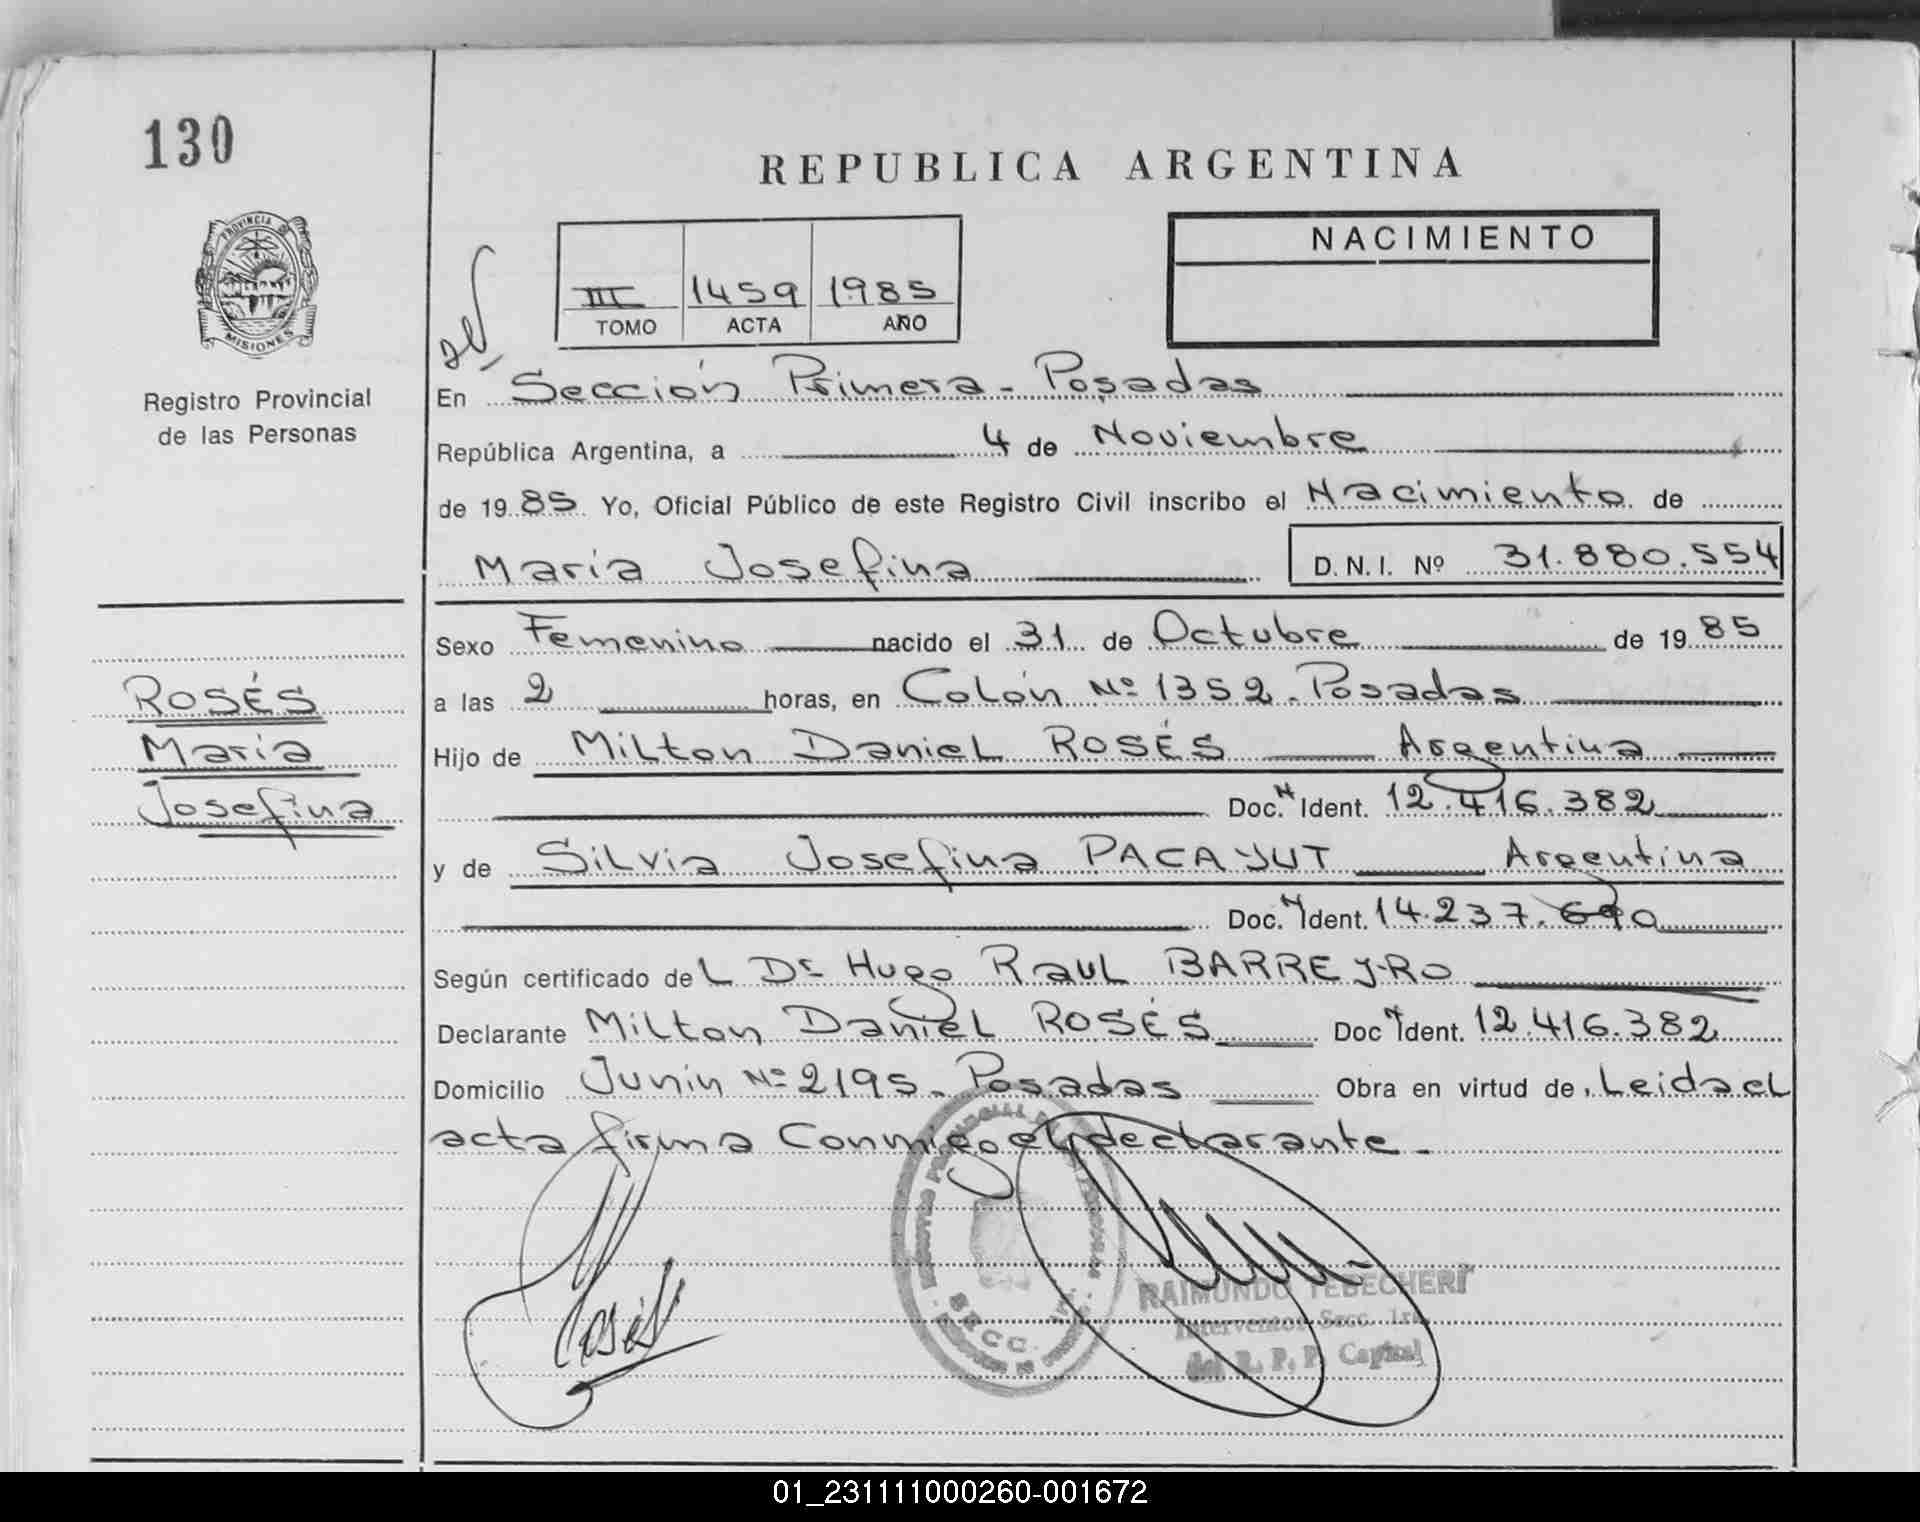 130
REPUBLICA ARGENTINA
PROVINCIA DE
MISIONES
Registro Provincial
de las Personas
III 1459 1985
TOMO ACTA AÑO
NACIMIENTO
En Sección Primera - Posadas
República Argentina, a 4 de Noviembre
de 1985 Yo, Oficial Público de este Registro Civil inscribo el Nacimiento de
María Josefina D.N.I. Nº 31.880.554
Sexo Femenino nacido el 31 de Octubre de 1985
a las 2 horas, en Colón Nº 1352 - Posadas
Hijo de Milton Daniel ROSÉS Argentina
Doc. N Ident. 12.416.382
y de Silvia Josefina PACAYUT Argentina
Doc. N Ident. 14.237.690
Según certificado del Dr Hugo Raul BARREYRO
Declarante Milton Daniel ROSÉS Doc N Ident. 12.416.382
Domicilio Junín Nº 2195 - Posadas Obra en virtud de, Leida el
acta firma Conmigo el declarante -
ROSÉS
María
Josefina
Rosés
RAIMUNDO TEBECHERI
Interventor Secc. 1ra.
del R. P. P. Capital
01_231111000260-001672